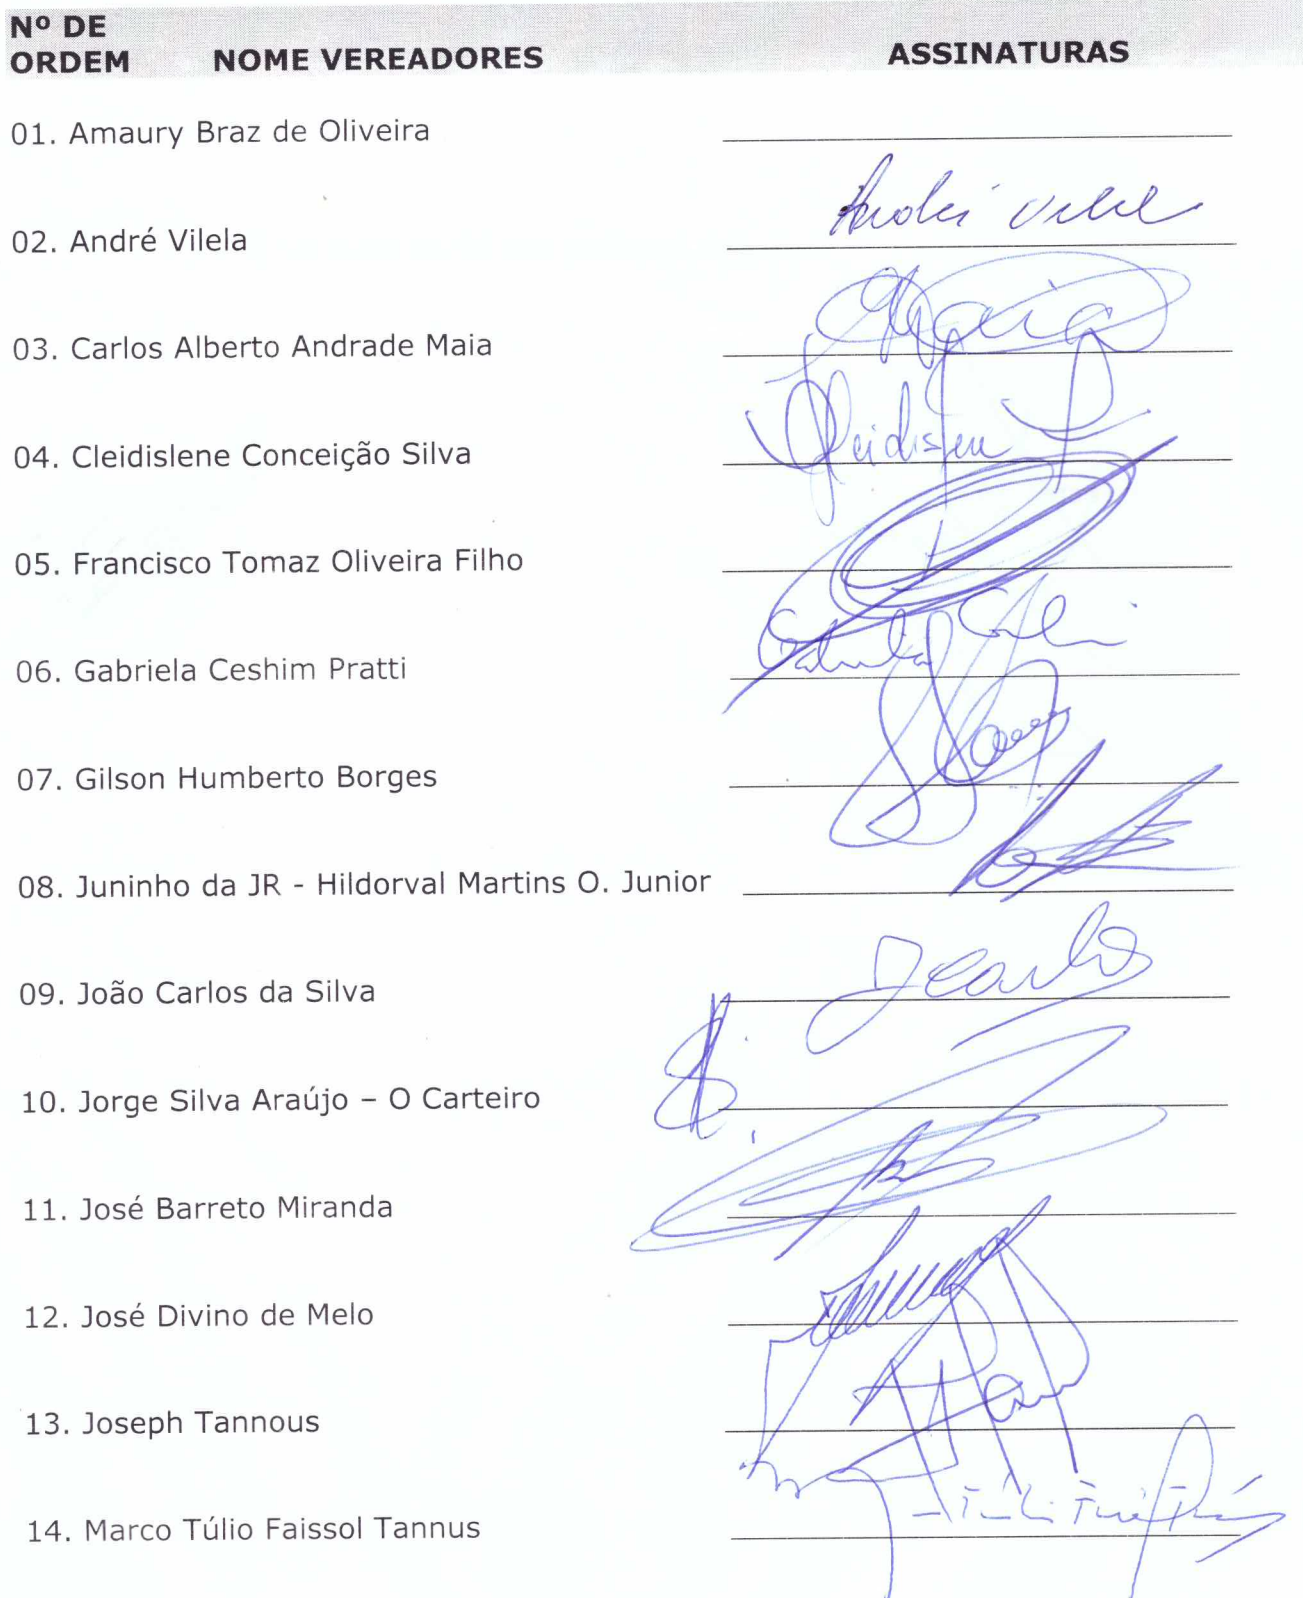 Nº DE
ORDEM NOME VEREADORES ASSINATURAS
01. Amaury Braz de Oliveira
02. André Vilela
03. Carlos Alberto Andrade Maia
04. Cleidislene Conceição Silva
05. Francisco Tomaz Oliveira Filho
06. Gabriela Ceshim Pratti
07. Gilson Humberto Borges
08. Juninho da JR - Hildorval Martins O. Junior
09. João Carlos da Silva
10. Jorge Silva Araújo – O Carteiro
11. José Barreto Miranda
12. José Divino de Melo
13. Joseph Tannous
14. Marco Túlio Faissol Tannus